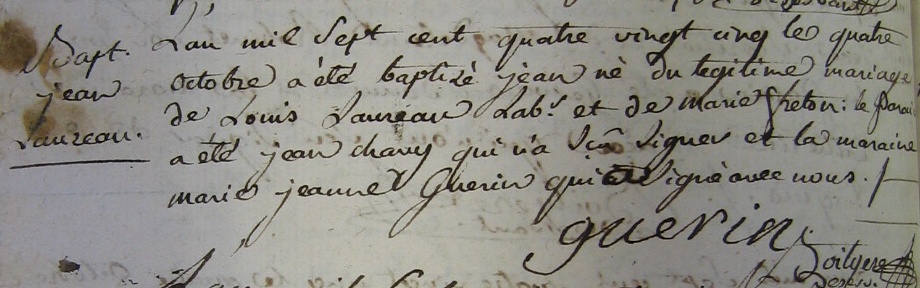 Bapt. L'an mil Sept cent quatre vingt cinq le quatre
jean octobre a été baptizé jean né du legitime mariage
de Louis Laureau Lab.r et de marie freton: le parai
Laureau. a été jean chavy qui n'a Sçu Signer et la maraine
marie jeanne Guerin qui a Signé avec nous.
guerin